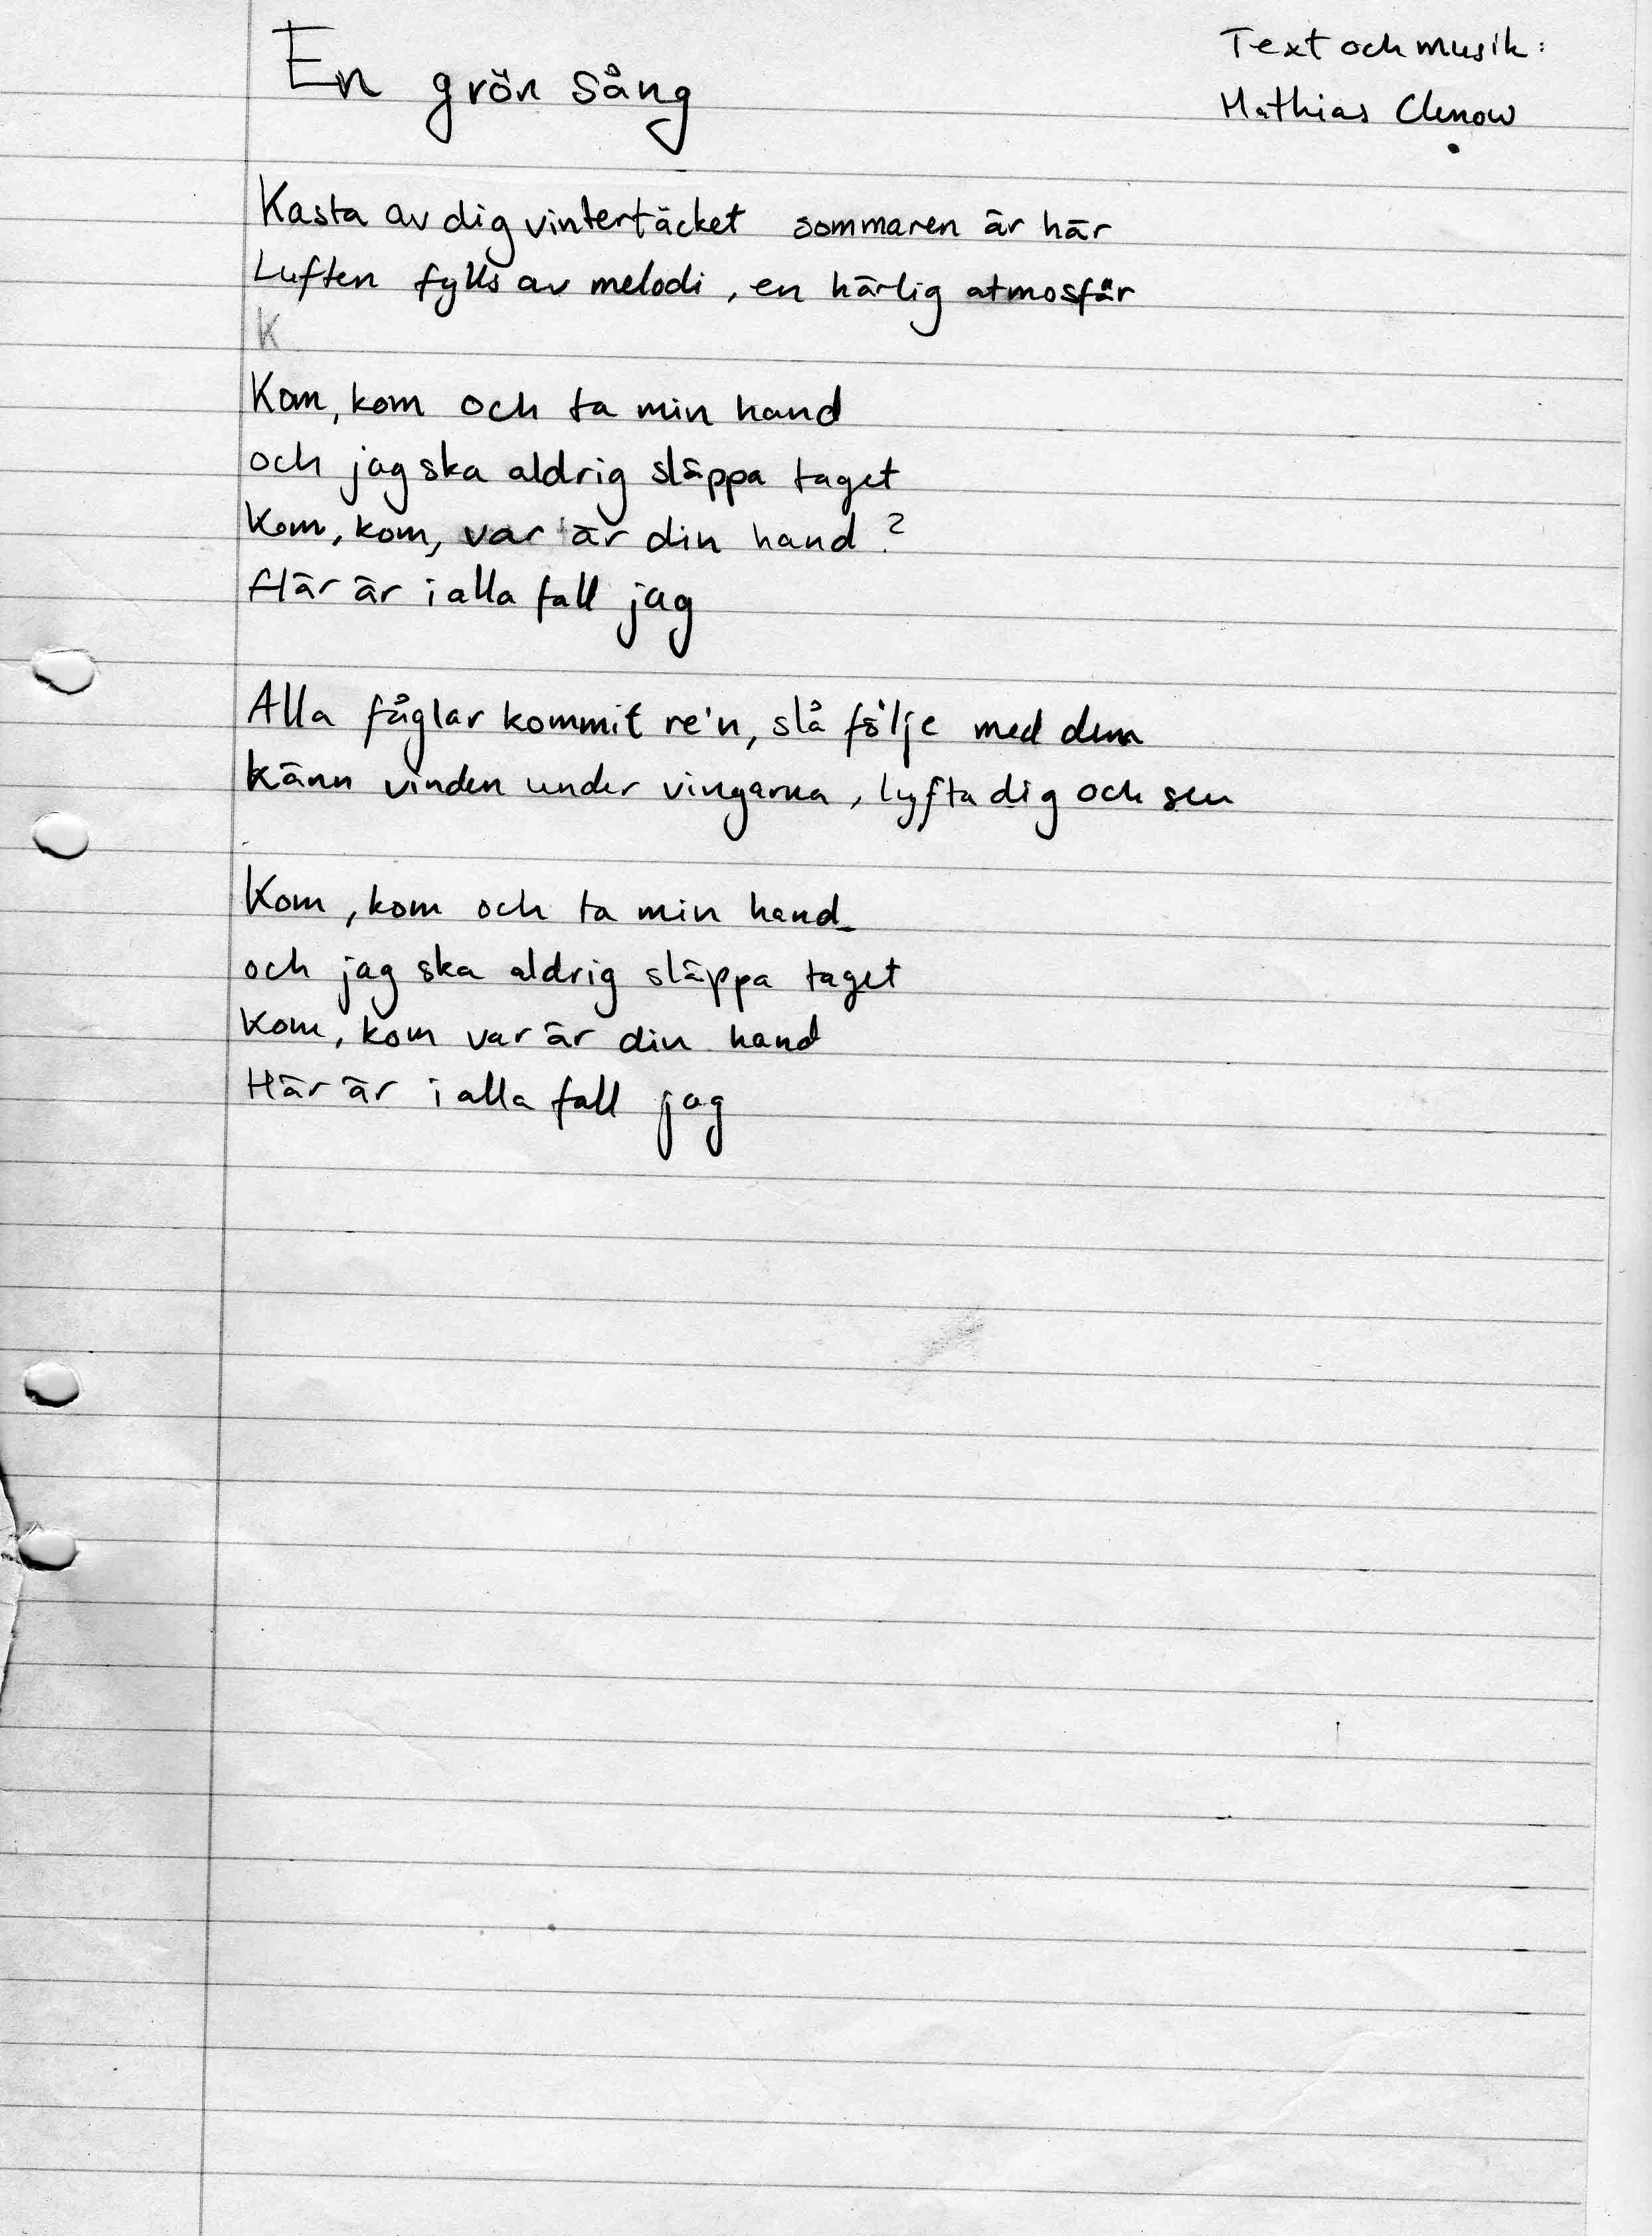 En grön sång
Text och musik:
Mathias Clenow
Kasta av dig vintertäcket sommaren är här
Luften fylls av melodi, en härlig atmosfär
K
Kom, kom och ta min hand
och jag ska aldrig släppa taget
Kom, kom, var är din hand?
Här är i alla fall jag
Alla fåglar kommit re'n, slå följe med dem
Känn vinden under vingarna, lyfta dig och sen
Kom, kom och ta min hand
och jag ska aldrig släppa taget
Kom, kom var är din hand
Här är i alla fall jag